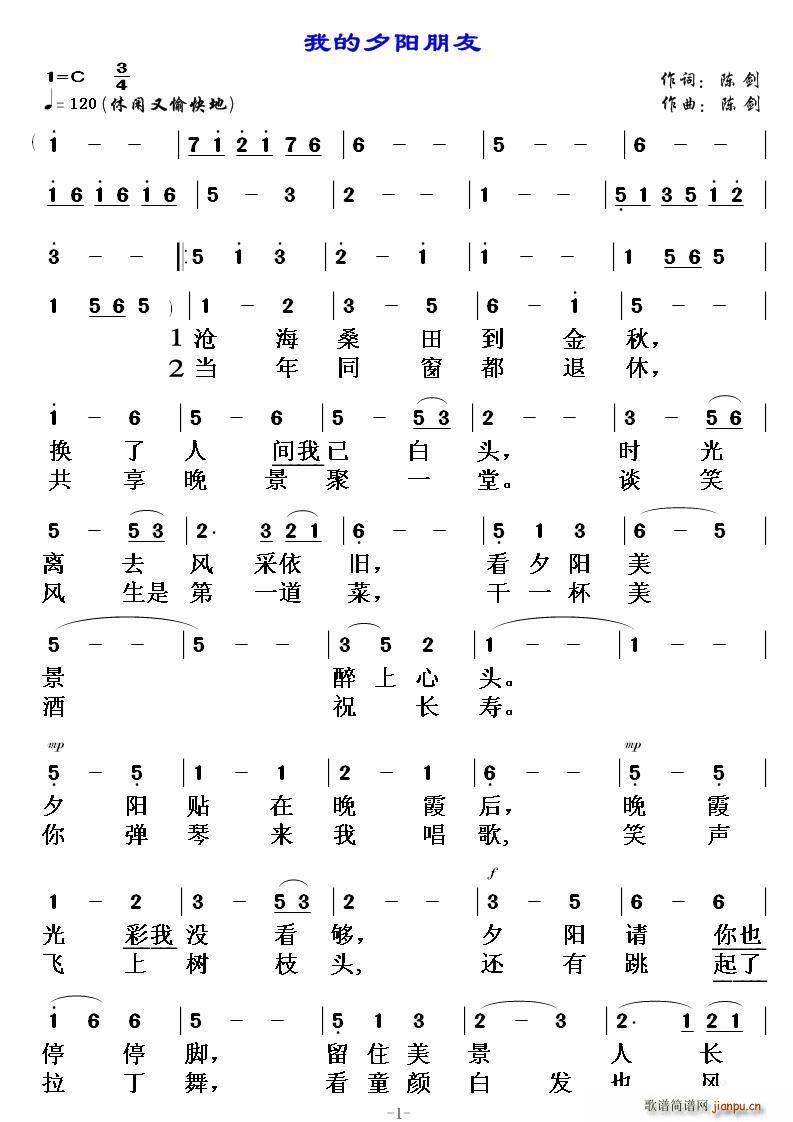 我的夕阳朋友
1=C 3/4
作词：陈剑
♩=120(休闲又愉快地)
作曲：陈剑
( 1̇ - - | 7 1̇ 2̇ 1̇ 7 6 | 6 - - | 5 - - | 6 - - |
1̇ 6 1̇ 6 1̇ 6 | 5 - 3 | 2 - - | 1 - - | 5̣ 1 3 5 1̇ 2̇ |
3̇ - - |: 5 1̇ 3̇ | 2̇ - 1̇ | 1̇ - - | 1 5 6 5 |
1 5 6 5 ) | 1 - 2 | 3 - 5 | 6 - 1̇ | 5 - - |
1 沧 海 桑 田 到 金 秋，
2 当 年 同 窗 都 退 休，
1̇ - 6 | 5 - 6 | 5 - 5 3 | 2 - - | 3 - 5 6 |
换 了 人 间我已 白 头， 时 光
共 享 晚 景 聚 一 堂。 谈 笑
5 - 5 3 | 2· 3 2 1 | 6̣ - - | 5̣ 1 3 | 6 - 5 |
离 去 风 采依 旧， 看 夕 阳 美
风 生是 第 一道 菜， 干 一 杯 美
5 - - | 5 - - | 3 5 2 | 1 - - | 1 - - |
景 醉 上 心 头。
酒 祝 长 寿。
mp mp
5̣ - 5̣ | 1 - 1 | 2 - 1 | 6̣ - - | 5̣ - 5̣ |
夕 阳 贴 在 晚 霞 后， 晚 霞
你 弹 琴 来 我 唱 歌， 笑 声
f
1 - 2 | 3 - 5 3 | 2 - - | 3 - 5 | 6 - 6 |
光 彩我 没 看 够， 夕 阳 请 你也
飞 上 树 枝 头， 还 有 跳 起了
1̇ 6 6 | 5 - - | 5̣ 1 3 | 2 - 3 | 2· 1 2 1 |
停 停 脚， 留 住 美 景 人 长
拉 丁 舞， 看 童 颜 白 发 也 风
-1-
歌谱简谱网 jianpu.cn